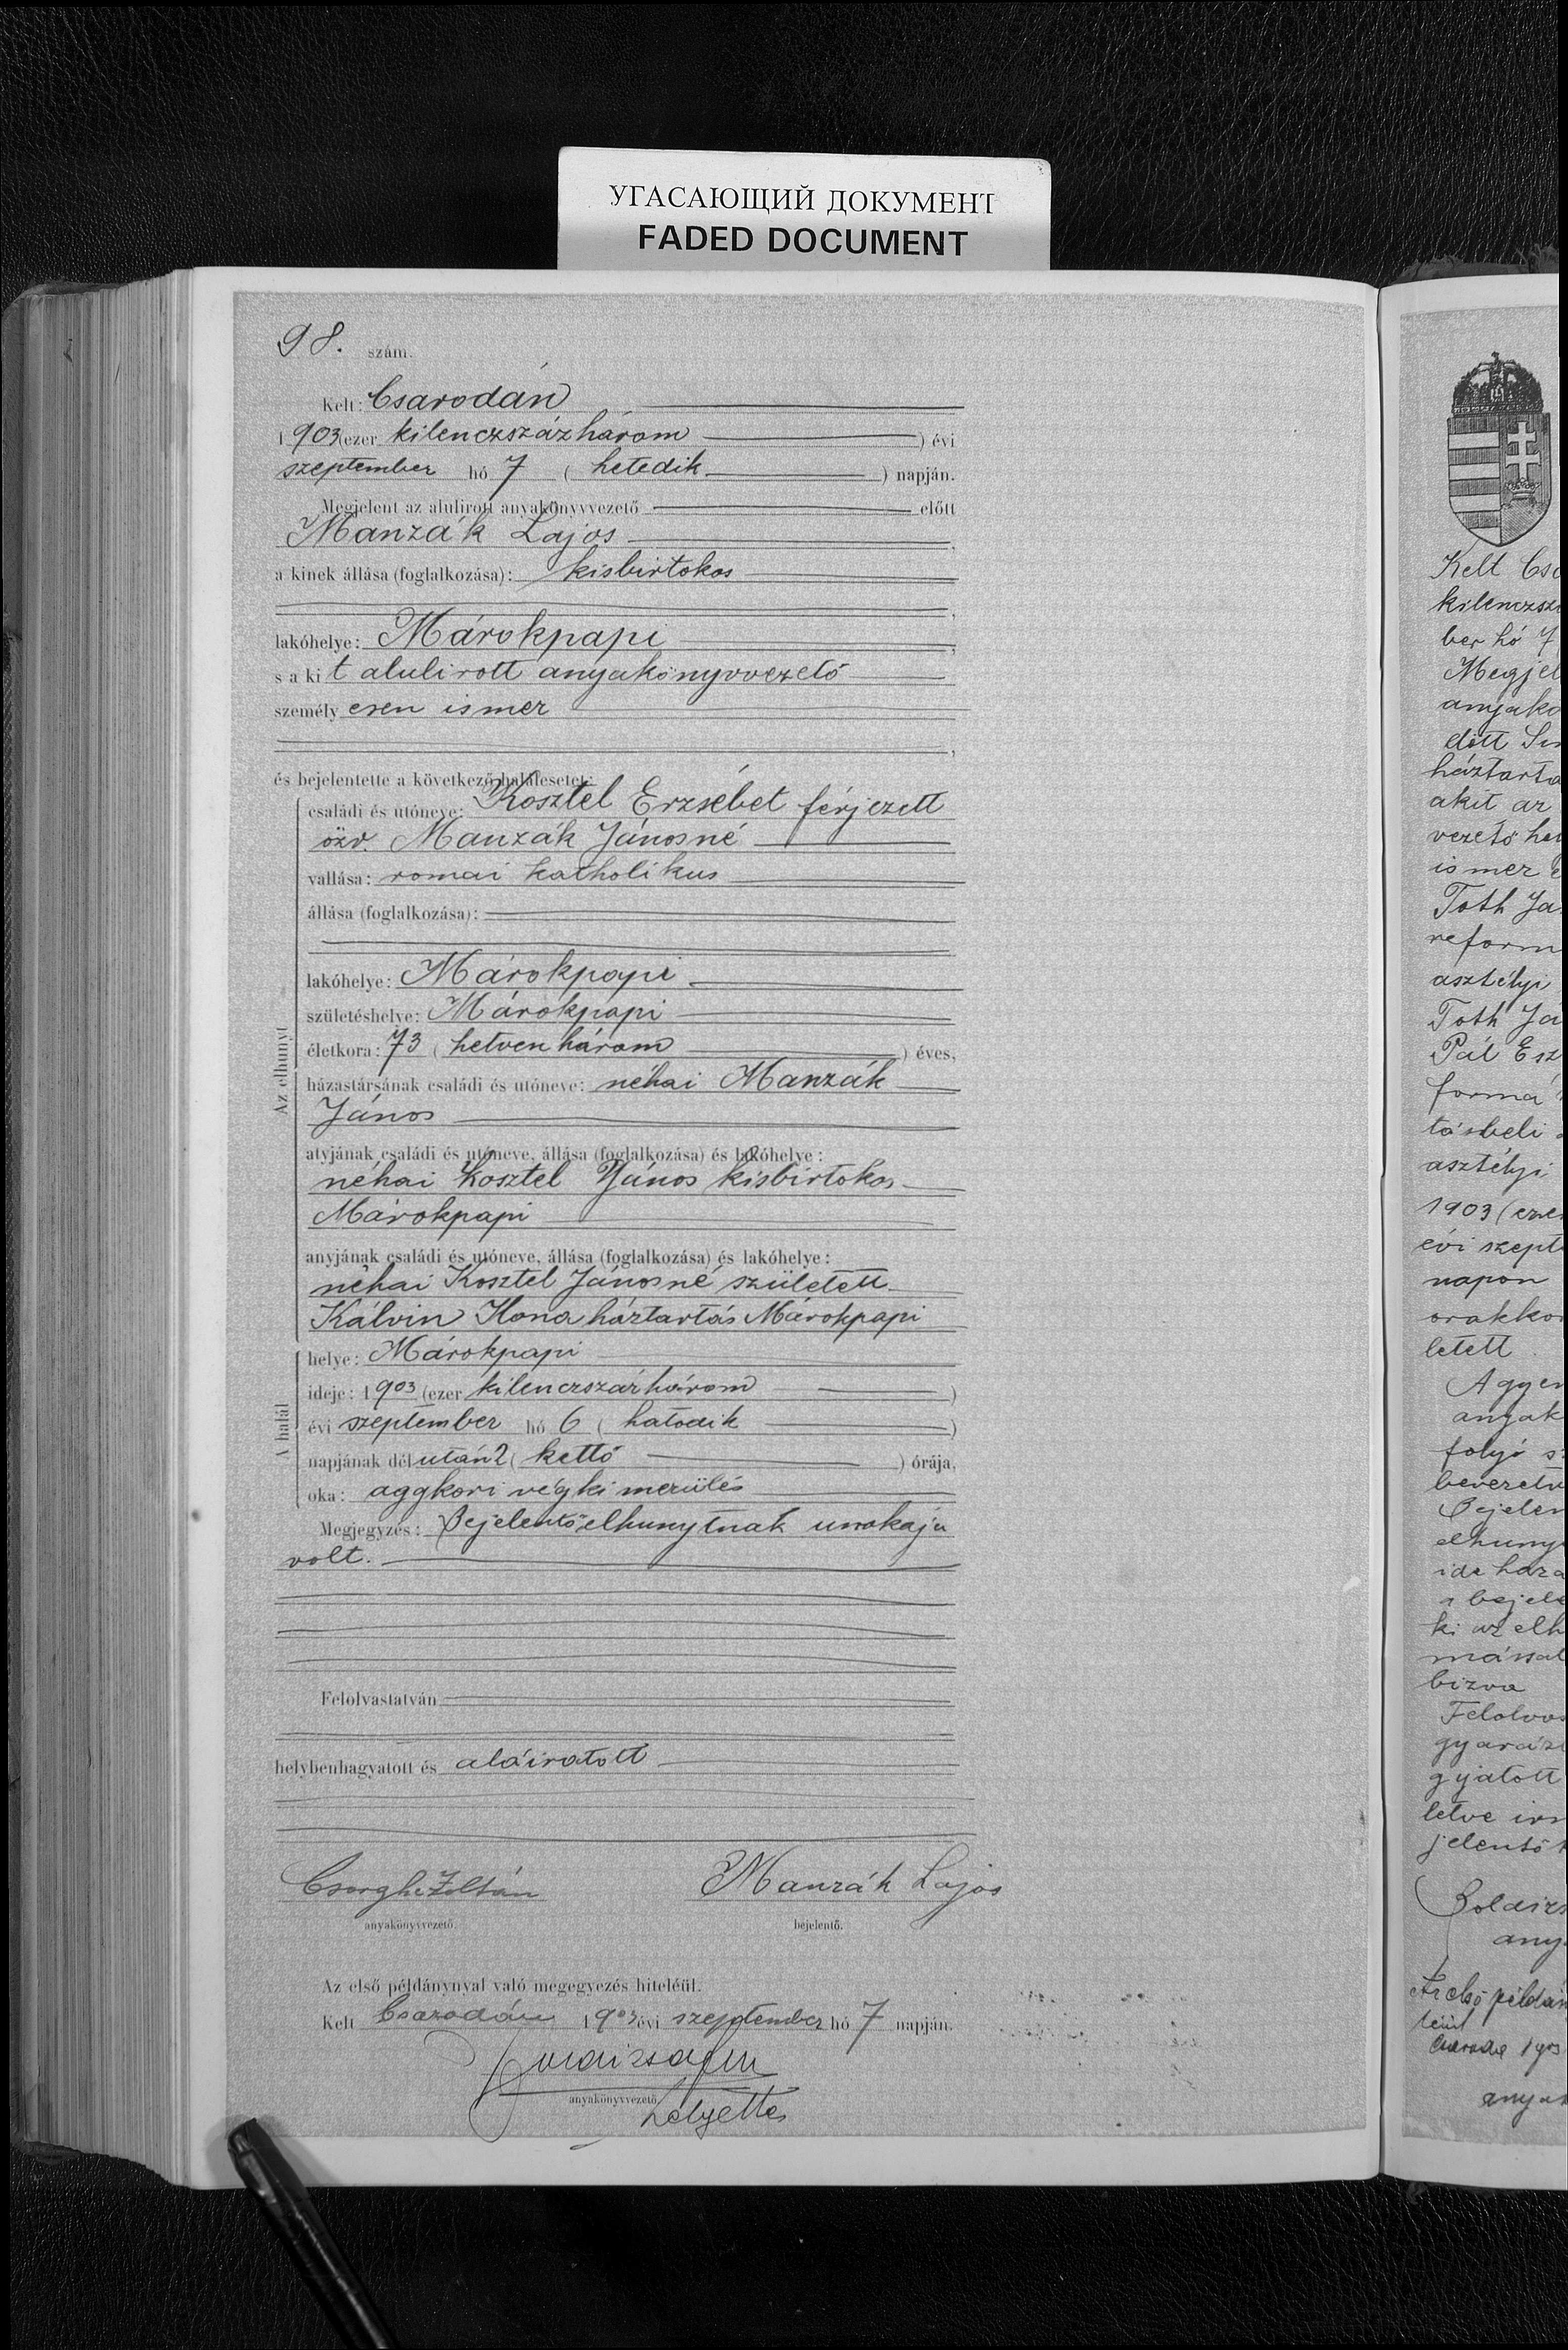 УГАСАЮЩИЙ ДОКУМЕНТ
FADED DOCUMENT
98. szám.
Kelt: Csarodán
1903 (ezer kilenczszázhárom ) évi
szeptember hó 7 ( hetedik ) napján.
Megjelent az alulirott anyakönyvvezető előtt
Manzák Lajos ,
a kinek állása (foglalkozása): kisbirtokos
,
lakóhelye: Márokpapi ,
s a kit alulirott anyakönyvvezető
személyesen ismer
,
és bejelentette a következő halálesetet:
Az elhunyt
családi és utóneve: Kosztel Erzsébet férjezett
özv. Manzák Jánosné
vallása: romai katholikus
állása (foglalkozása):
lakóhelye: Márokpapi
születéshelye: Márokpapi
életkora: 73 ( hetvenhárom ) éves,
házastársának családi és utóneve: néhai Manzák
János
atyjának családi és utóneve, állása (foglalkozása) és lakóhelye:
néhai Kosztel János kisbirtokos
Márokpapi
anyjának családi és utóneve, állása (foglalkozása) és lakóhelye:
néhai Kosztel Jánosné született
Kálvin Ilona háztartás Márokpapi
A halál
helye: Márokpapi
ideje: 1903 (ezer kilenczszázhárom )
évi szeptember hó 6 ( hatodik )
napjának délután 2 ( kettő ) órája,
oka: aggkori végkimerülés
Megjegyzés: Bejelentő elhunytnak unokája
volt.
Felolvastatván
helybenhagyatott és aláiratott
Zoltán Manzák Lajos
anyakönyvvezető. bejelentő.
Az első példánynyal való megegyezés hiteléül.
Kelt Csarodán 1903 évi szeptember hó 7 napján.
anyakönyvvezető
helyettes
Kelt Csa
kilenczszá
ber hó 7
Megjel
anyakö
háztartá
akit az
vezető
ismer
Toth Já
reform
asztélyi
Toth Já
Pál Esz
formá
tásbeli
asztélyi
1903 (ezer
évi szept
napon
orakkor
letett
anyak
folyó s
bevezetv
Bejelen
elhuny
ide haza
a bejele
ki az elh
mással
bizva
Felolvas
gyaráz
gyatott
letve
jelentő
any
Az első példán
Csarodá 1903
anyak